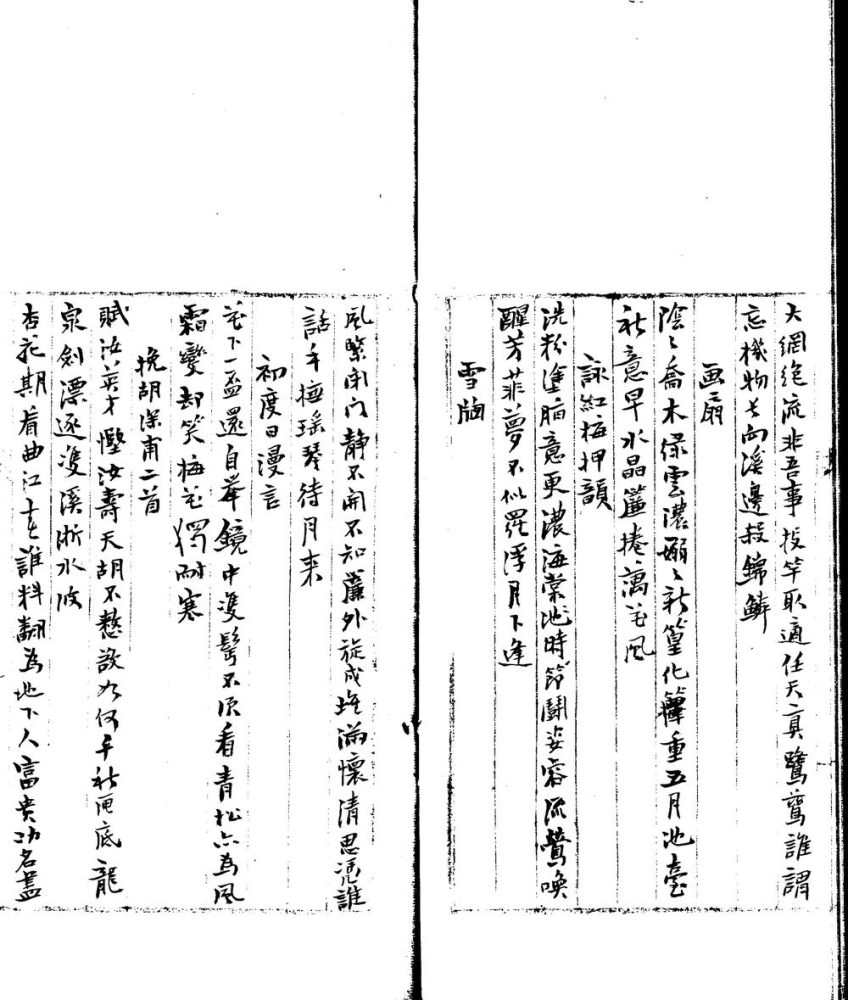 大網絶流非吾事投竿取適任天真鷺鷥誰謂
忘機物長向溪邊殺錦鱗
画扇
陰〻喬木緑雲濃嫋〻新篁化籜重五月池臺
秋意早水晶簾捲藕花風
詠紅梅押韻
洗粉塗脂意更濃海棠池時節鬪姿容流鶯喚
醒芳菲夢不似羅浮月下逢
雪牕
風緊閉门静不開不知簾外旋成堆滿懷清思凴誰
話手撫瑶琴待月来
初度日漫言
花下一盃還自举鏡中雙鬢不須看青松亦為風
霜變却笑梅花獨耐寒
挽胡深甫二首
賦汝英才慳汝壽天胡不憖設如何千秋匣底龍
泉剑漂逐雙溪淅水波
杏花期看曲江春誰料翻為地下人富贵功名盖